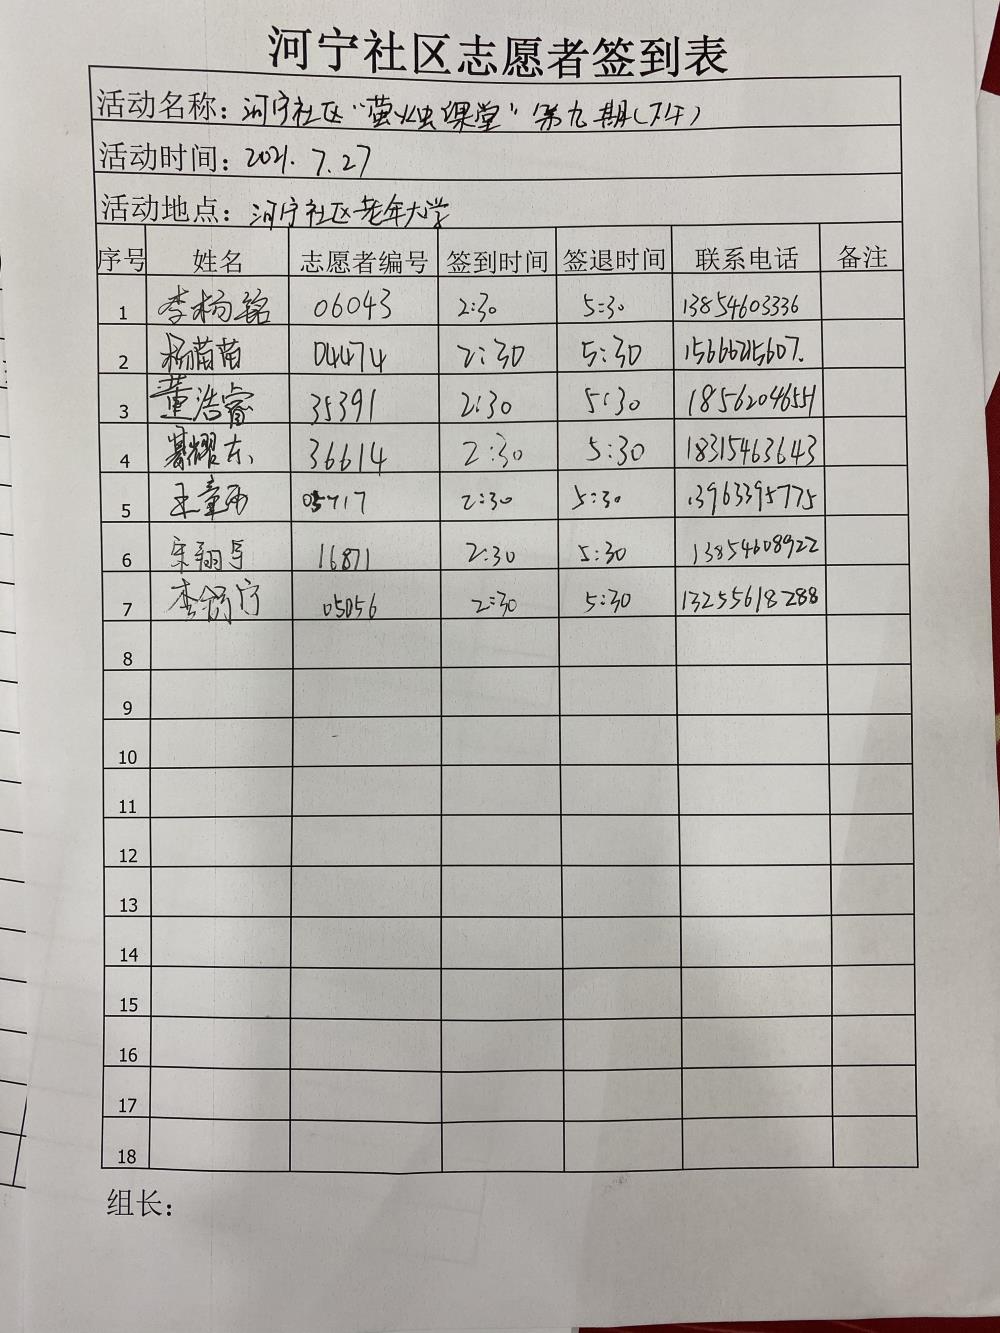 河宁社区志愿者签到表
活动名称：河宁社区“萤火虫课堂”第九期（下午）
活动时间：2021.7.27
活动地点：河宁社区老年大学
序号 姓名 志愿者编号 签到时间 签退时间 联系电话 备注
1 李杨铭 06043 2:30 5:30 13854603336
2 杨苗苗 04474 2:30 5:30
3 董浩睿 35391 2:30 5:30 18562046551
4 綦耀东 36614 2:30 5:30 18315463643
5 王童 2:30 5:30 13963395775
6 宋翔宇 16871 2:30 5:30 13854608922
7 李舒宁 05056 2:30 5:30 13255618288
8
9
10
11
12
13
14
15
16
17
18
组长：